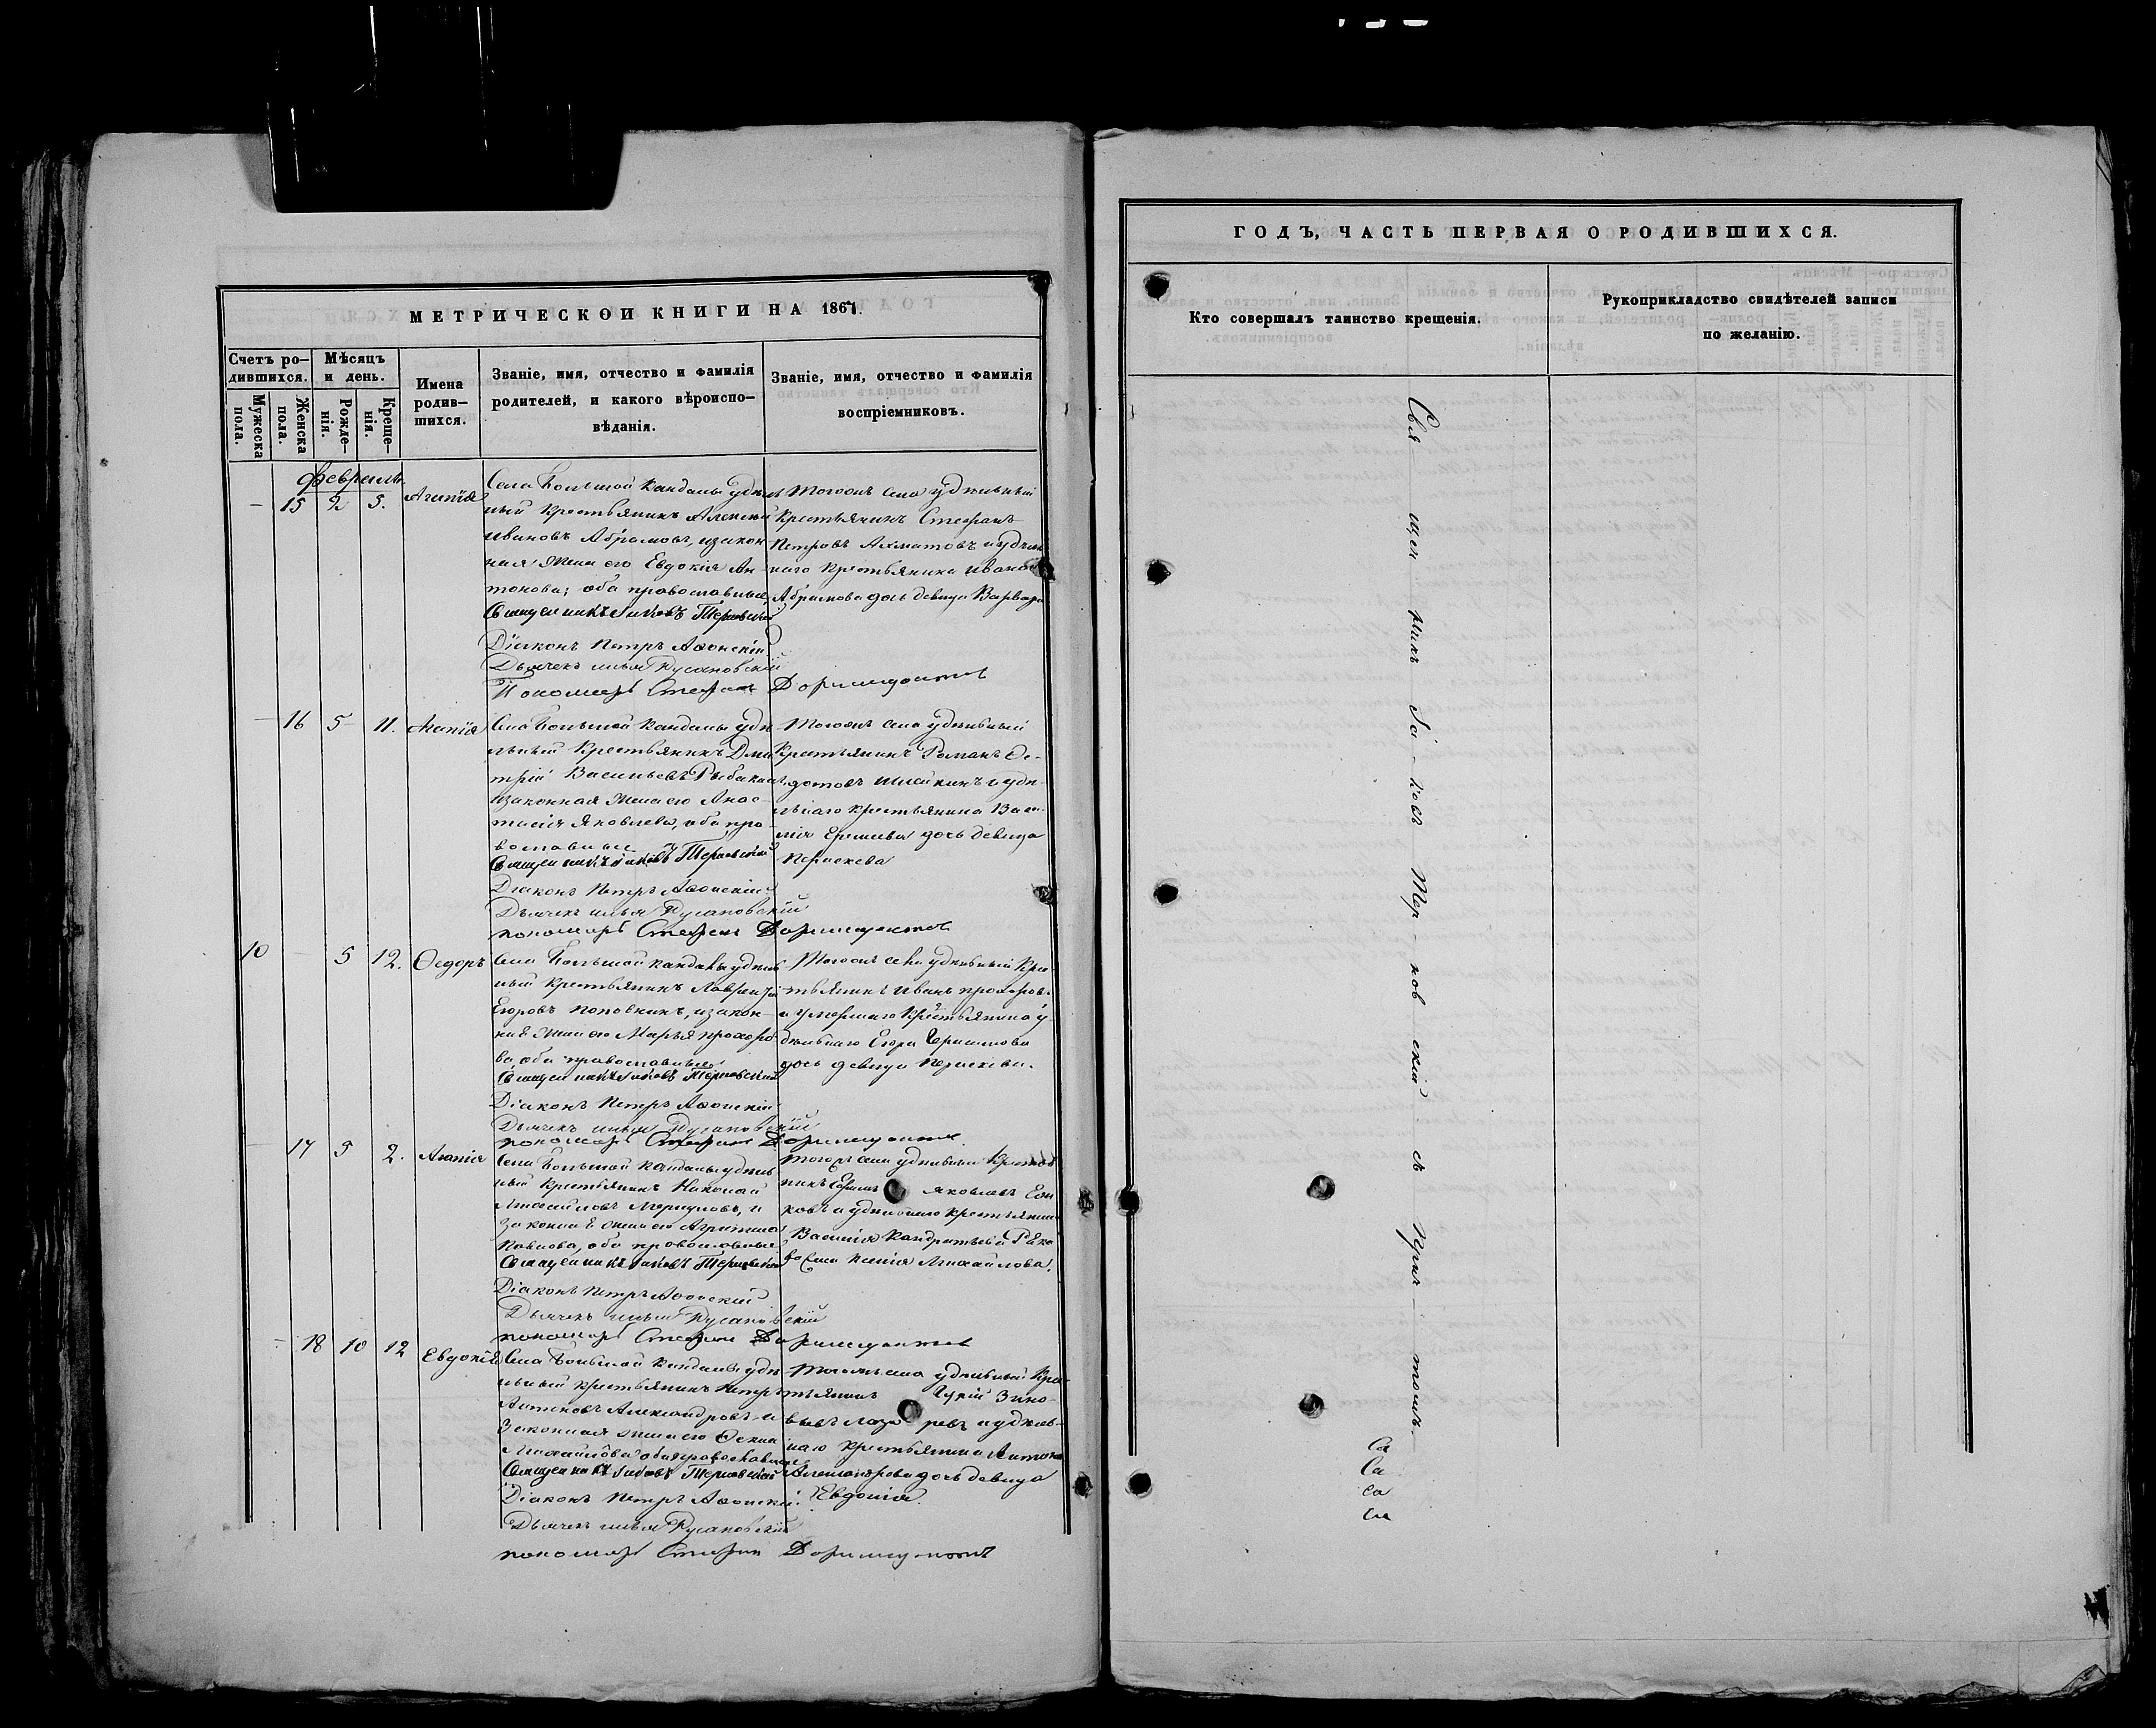 МЕТРИЧЕСКОЙ КНИГИ НА 1861.
Счетъ ро-
дившихся.
Мѣсяцъ
и день.
Имена
родив-
шихся.
Званіе, имя, отчество и фамилія
родителей, и какого вѣроиспо-
вѣданія.
Званіе, имя, отчество и фамилія
воспріемниковъ.
Мужеска
пола.
Женска
пола.
Рожде-
нія.
Креще-
нія.
февраль.
— 15 2 5. Агапія
Села Большой Кандалы удѣль
ный крестьянинъ Алексѣй
Ивановъ Абрамовъ, и закон
ная жена его Евдокія Ан
тонова; оба православные,
Священникъ Іаковъ Терновскій
Діаконъ Петръ Афонскій
Дьячекъ Илья Русановскій
Пономарь Стефан Доримедонтов
Тогоже села удѣльный
крестьянинъ Стефанъ
Петровъ Ахматовъ и удѣль
наго крестьянина Ивана
Абрамова дочь девица Варвара
— 16 5 11. Агапія
Села Большой Кандалы удѣ
льный крестьянинъ Дми
трій Васильевъ Рыбакин
и законная жена его Анас-
тасія Яковлева, оба пра
вославные
Священникъ Іаковъ Терновскій
Діаконъ Петръ Афонскій
Дьячекъ Илья Русановскій
пономарь Стефан Доримедонтов
Тогоже села удѣльный
Крестьянинъ Романъ Фе-
дотовъ и удѣ
льнаго крестьянина Васи
лія дочь девица
Параскева
10 — 5 12. Ѳедоръ
Села Большой Кандалы удѣль
ный крестьянинъ Лаврентій
Егоровъ Поповкинъ, и закон-
ная жена его Марья Прохоро
ва оба православные
Священникъ Іаковъ Терновскій
Діаконъ Петръ Афонскій
Дьячекъ Илья Русановскій
пономарь Стефан Доримедонтов
Тогоже села удѣльный кре
стьянинъ Иванъ Прохоровъ
и умершаго крестьянина у
дѣльнаго Егора Герасимова
дочь девица Параскева.
— 17 5 2. Агапія
Села Большой Кандалы удѣль
ный крестьянинъ Николай
Михайловъ и
законная жена его Агрипина
Павлова, оба православные.
Священникъ Іаковъ Терновскій
Діаконъ Петръ Афонскій
Дьячекъ Илья Русановскій
пономарь Стефан Доримедонтов
Тогожъ села удѣльный крестья
нинъ Ефимъ Яковлевъ
и удѣльнаго крестьянина
Василія Кандратьева
Ксенія Михайлова.
— 18 10 12 Евдокія
Села Большой Кандалы удѣ
льный крестьянинъ Петръ
Антоновъ Александровъ и
законная жена его Ѳекла
Михайлова оба православные
Священникъ Іаковъ Терновскій
Діаконъ Петръ Афонскій.
Дьячекъ Илья Русановскій
пономарь Стефан Доримедонтов
Тогожъ села удѣльный кре-
стьянинъ Гурій Зино-
вьевъ Лазаревъ и удѣль-
наго крестьянина Антона
Александрова дочь девица
Евдокія.
ГОДЪ, ЧАСТЬ ПЕРВАЯ О РОДИВШИХСЯ.
Кто совершалъ таинство крещенія.
Рукоприкладство свидѣтелей записи
по желанію.
Свя-щен никъ Іа-ковъ Тер-нов скій съ Прич-томъ.